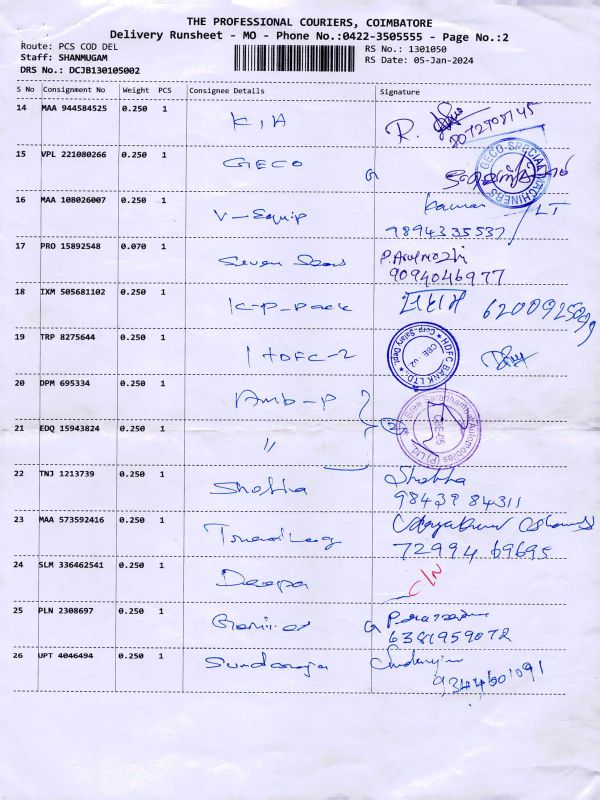 THE PROFESSIONAL COURIERS, COIMBATORE
Delivery Runsheet - MO - Phone No.:0422-3505555 - Page No.:2
Route: PCS COD DEL
RS No.: 1301050
Staff: SHANMUGAM
RS Date: 05-Jan-2024
DRS No.: DCJB130105002
S No Consignment No Weight PCS Consignee Details Signature
14 MAA 944584525 0.250 1 KIA R.
15 VPL 221080266 0.250 1 GECO GECO-SPECIAL MACHINERS
16 MAA 108026007 0.250 1 V-Equip Kumar
9894335537 / LT
17 PRO 15892548 0.070 1 Seven Seas P.Arulmozhi
9094046977
18 IXM 505681102 0.250 1 K-P-Pack
19 TRP 8275644 0.250 1 HDFC-2 HDFC BANK LTD., Corp. Salary Dept. CBE-02
20 DPM 695334 0.250 1 Amb-P
21 EDQ 15943824 0.250 1 " 2 Automobiles (P) Ltd.
22 TNJ 1213739 0.250 1 Shobha Shobha
98439 84311
23 MAA 573592416 0.250 1 Udayakumar
72994 69695
24 SLM 336462541 0.250 1 Deepa C/N
25 PLN 2308697 0.250 1
6381959072
26 UPT 4046494 0.250 1 Sundaraja
9344601091